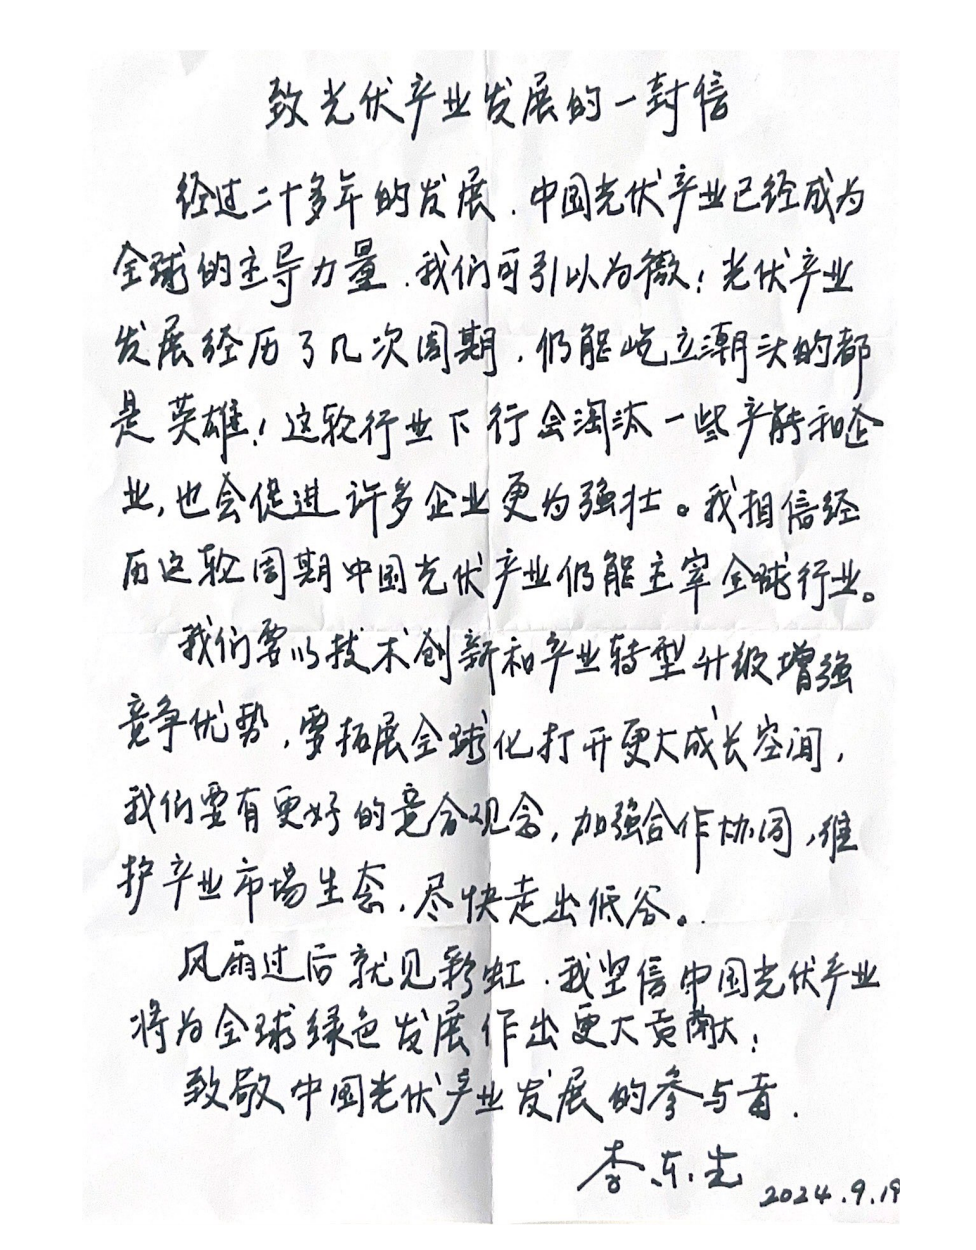 致光伏产业发展的一封信
经过二十多年的发展.中国光伏产业已经成为
全球的主导力量.我们可引以为傲!光伏产业
发展经历了几次周期.仍能屹立潮头的都
是英雄!这轮行业下行会淘汰一些产能和企
业,也会促进许多企业更为强壮。我相信经
历这轮周期中国光伏产业仍能主宰全球行业。
我们要以技术创新和产业转型升级增强
竞争优势,要拓展全球化打开更大成长空间,
我们要有更好的竞合观念,加强合作协同,维
护产业市场生态.尽快走出低谷。
风雨过后就见彩虹.我坚信中国光伏产业
将为全球绿色发展作出更大贡献!
致敬中国光伏产业发展的参与者.
李东生
2024.9.19